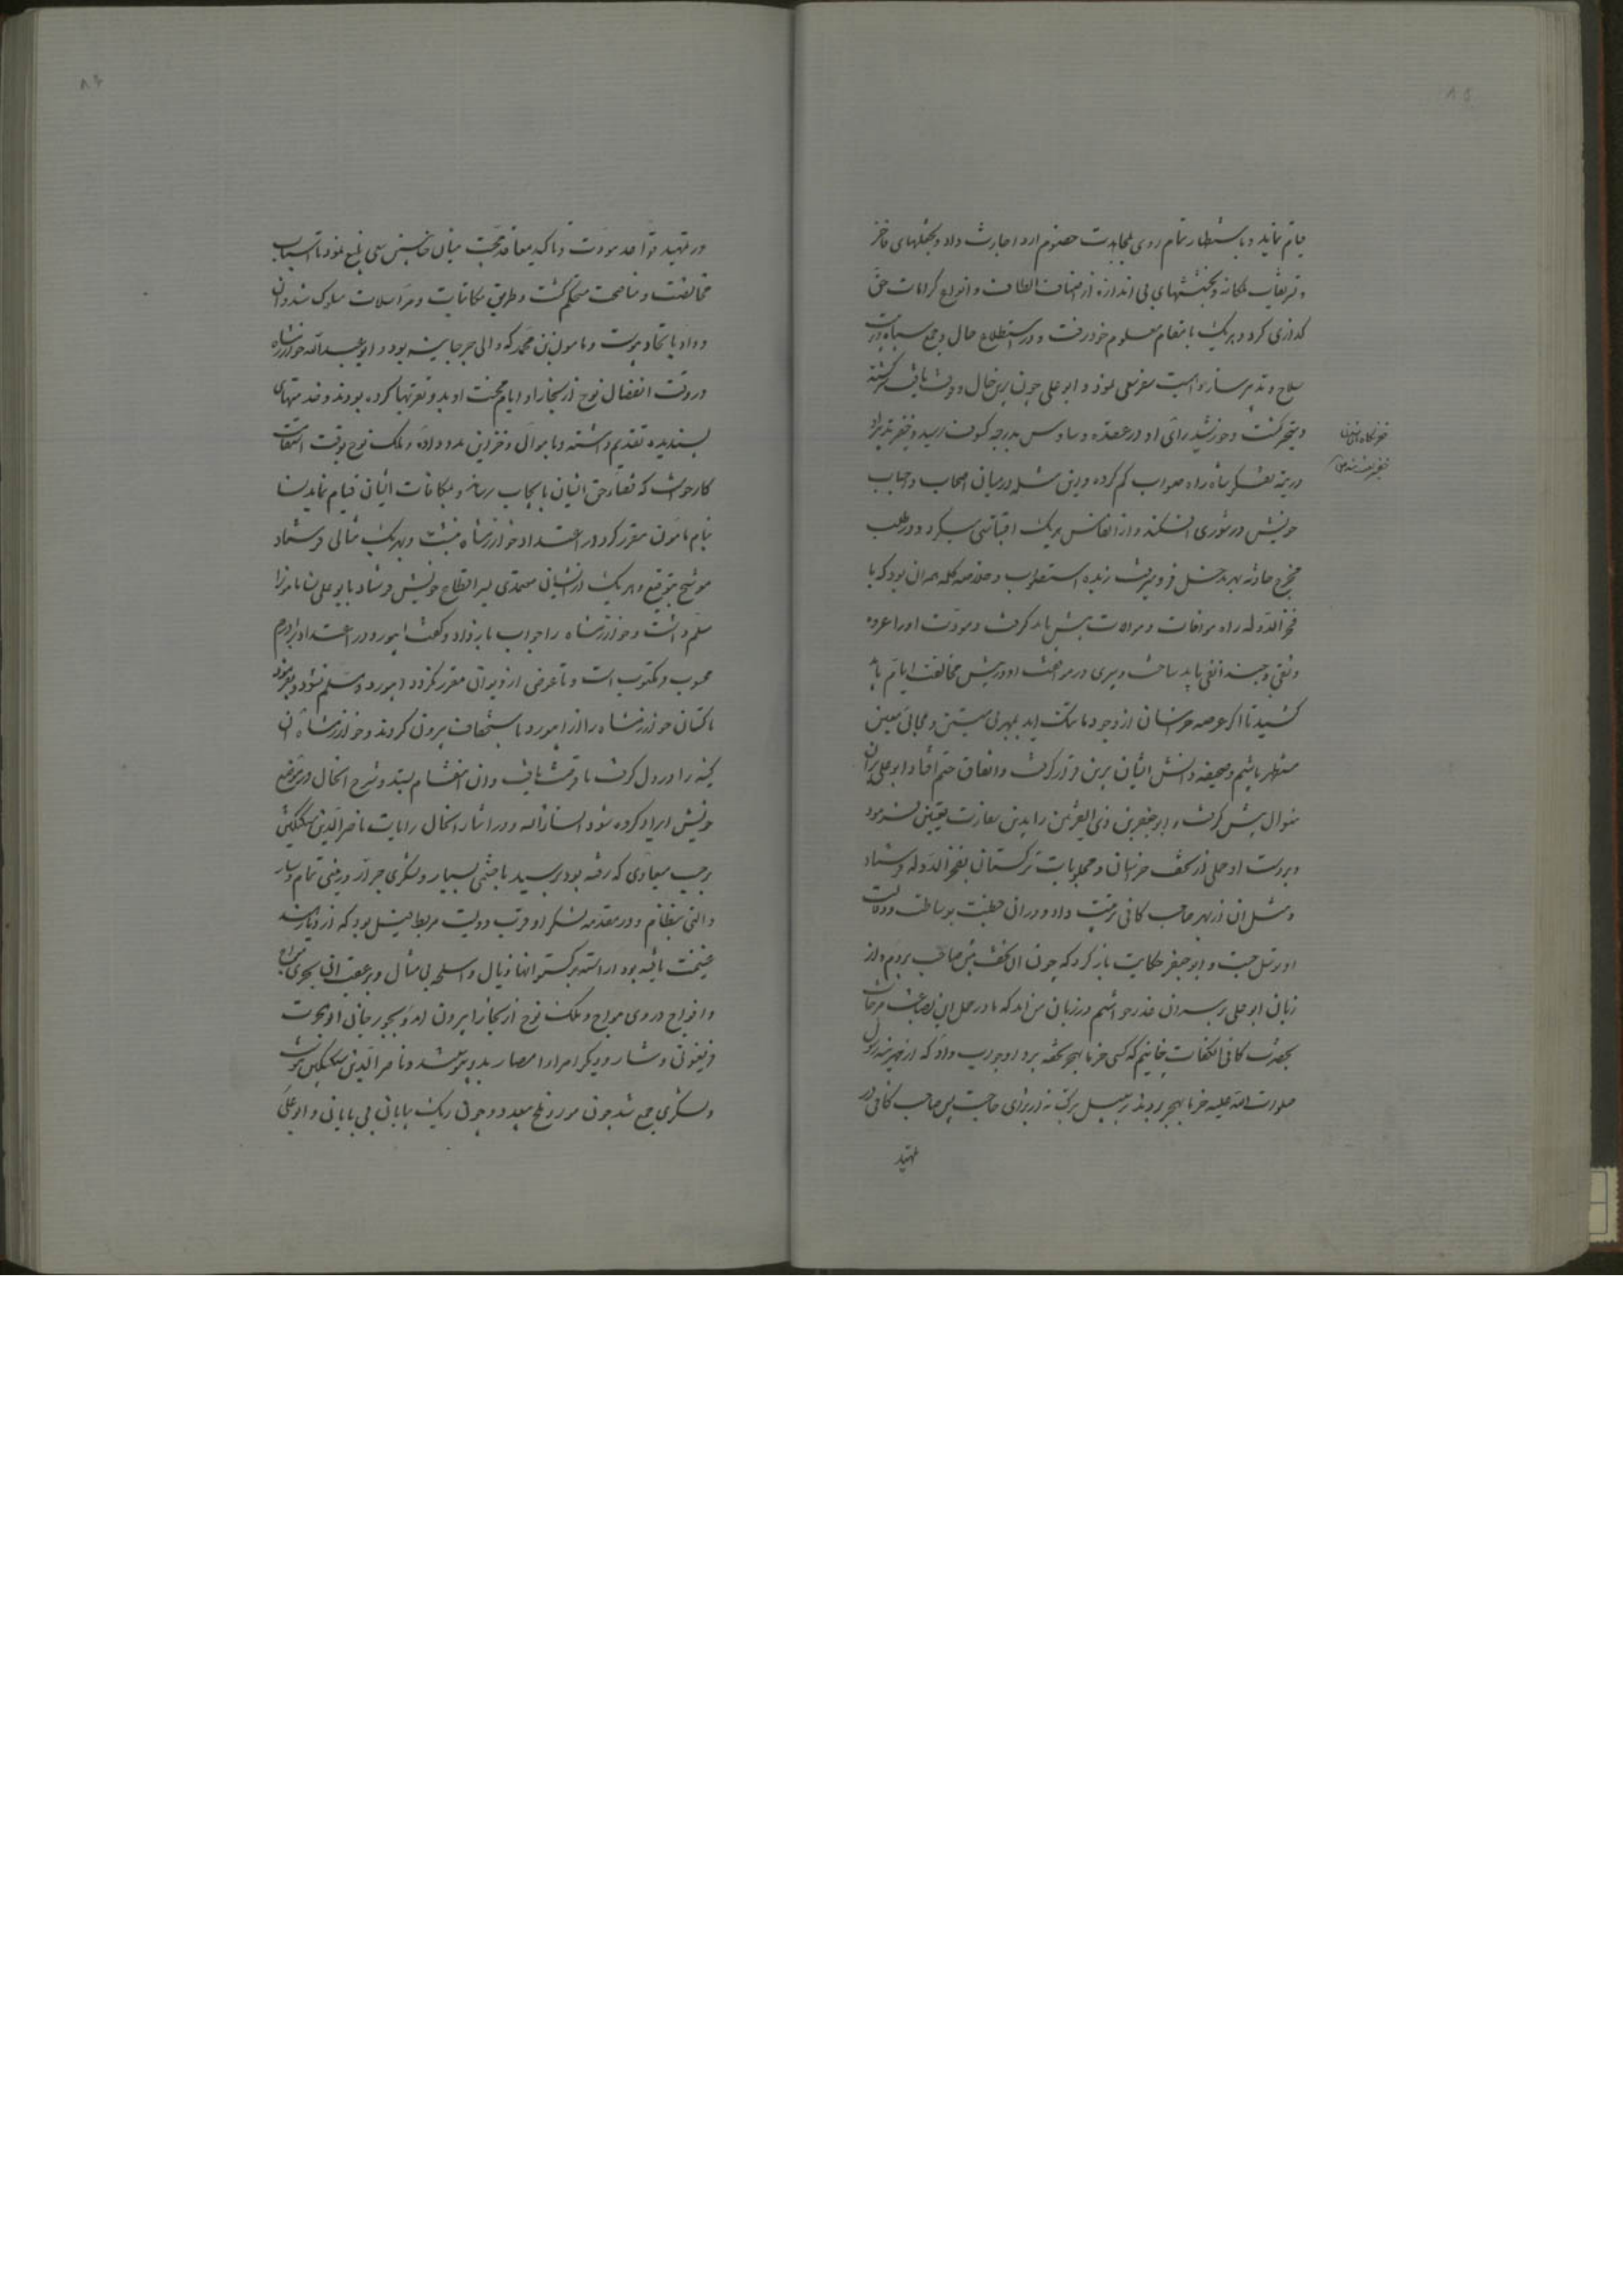 قیام نماید و باستظهار تمام روی بمجاهدت خصوم ارد اجازت داد و بخلعتهای فاخر
و تشریفات ملکانه و بخششهای بی اندازه از اضعاف الطاف و انواع کرامات حق
کذاری کرد و هر یک بامقام معلوم خود رفت و در استطلاع حال و جمع سپاه و ترتیب
سلاح و تدبیر ساز و اهبت سفر سعی نمود و ابو علی چون برین حال وقوف یافت سرکشته
و متحیر کشت و خورشید رای او در عقده وساوس بدرجه کسوف رسید و خضر تدبیر او
در تیه تفکر شاه راه صواب کم کرده و این مسله در میان اصحاب و احباب
خویش در شوری افکند و از انفاس هر یک اقتباسی میکرد و در طلب
مخرج حادثه بهر مدخل فرو میرفت زبده استصواب و خلاصه کلمه همه ان بود که با
فخر الدوله راه موافات و موالات پیش باید کرفت و مودت او را عروه
وثقی و جسند اقفی باید ساخت و سپری در مرافقت او در پیش مخالفت ایام باید
کشید تا اکر عرصه خراسان از وجود ما تنک اید بمهربی متین و مجالی معین
مستظهر باشیم و صحیفه دانش ایشان برین قرار کرفت و اتفاق ختم افتاد ابو علی بران
منوال پیش کرفت و ابو جعفر بن ذی القرنین را بدین سفارت تعیین فرمود
و بر دست او حملی از تحف خراسان و مجلوبات ترکستان بفخر الدوله فرستاد
و مثل ان از بهر صاحب کافی ترتیب داد و در ان خطبت بوساطت و دلالت
او توسل جست و ابو جعفر حکایت باز کرد که چون ان تحف پیش صاحب بردم و از
زبان ابو علی بر سر ان عذر خواستم و بر زبان من امد که ما در حمل این بضاعت مزجات
بحضرت کافی الکفات چنانیم که کسی خرما بهجر تحفه برد او جواب داد که از مدینه رسول
صلوات الله علیه خرما بهجر بردند بر سبیل تبرک نه از برای حاجت پس صاحب کافی در
تمهید
در تمهید قواعد مودت و تاکید معاقد محبت میان جانبین سعی بلیغ نمود تا اسباب
مخالصت و مناصحت مستحکم کشت و طریق مکاتبات و مراسلات مسلوک شد و ان
وداد باتحاد پیوست و مامون بن محمد که والی جرجانیه بود و ابو عبدالله خوارزمشاه
در وقت انفصال نوح از بخارا و ایام محنت او بدو تقربها کرده بودند و خدمتهای
پسندیده تقدیم داشته و باموال و خزاین مدد داده و ملک نوح بوقت استقامت
کار خواست که قضاء حق ایشان بایجاب رساند و بمکافات ایشان قیام نماید نسا
بنام مامون مقرر کرد و در اعتداد خوارزمشاه ثبت و بهر یک مثالی فرستاد
موشح بتوقیع و هر یک از ایشان معتمدی بسر اقطاع خویش فرستاد ابو علی نسا مامون را
مسلم داشت و خوارزمشاه را جواب باز داد و کفت ابیورد در اعتداد برادرم
محسوب و مکتوب است و تا عوضی از دیوان مقرر نکردد ابیورد مسلم نشود و بفرمود
تا کسان خوارزمشاه را از ابیورد باستخفاف بیرون کردند و خوارزمشاه ان
کینه را در دل کرفت تا فرصت یافت و ان انتقام بستد و شرح انحال در موضع
خویش ایراد کرده شود انشاءالله و در اثناء انحال رایات ناصرالدین سبکتکین
بر حسب میعادی که رفته بود برسید با حشمی بسیار و لشکری جرار و زینتی تمام و ساز
و التی بنظام و در مقدمه لشکر او قرب دویست مربط فیل بود که از دیار هند
غنیمت یافته بود اراسته ببرکستوانها و یال و اسلحه بی مثال و بر عقب ان بحری مواج
و افواج در وی مواج و ملک نوح از بخارا بیرون امد و بجوزجان ابو الحرث
فریغونی و شار و دیکر امراء امصار بدو پیوستند و ناصرالدین سبکتکین بدو پیوست
و لشکری جمع شد چون مور و ملخ بیعدد و چون ریک بیابان بی پایان و ابو علی